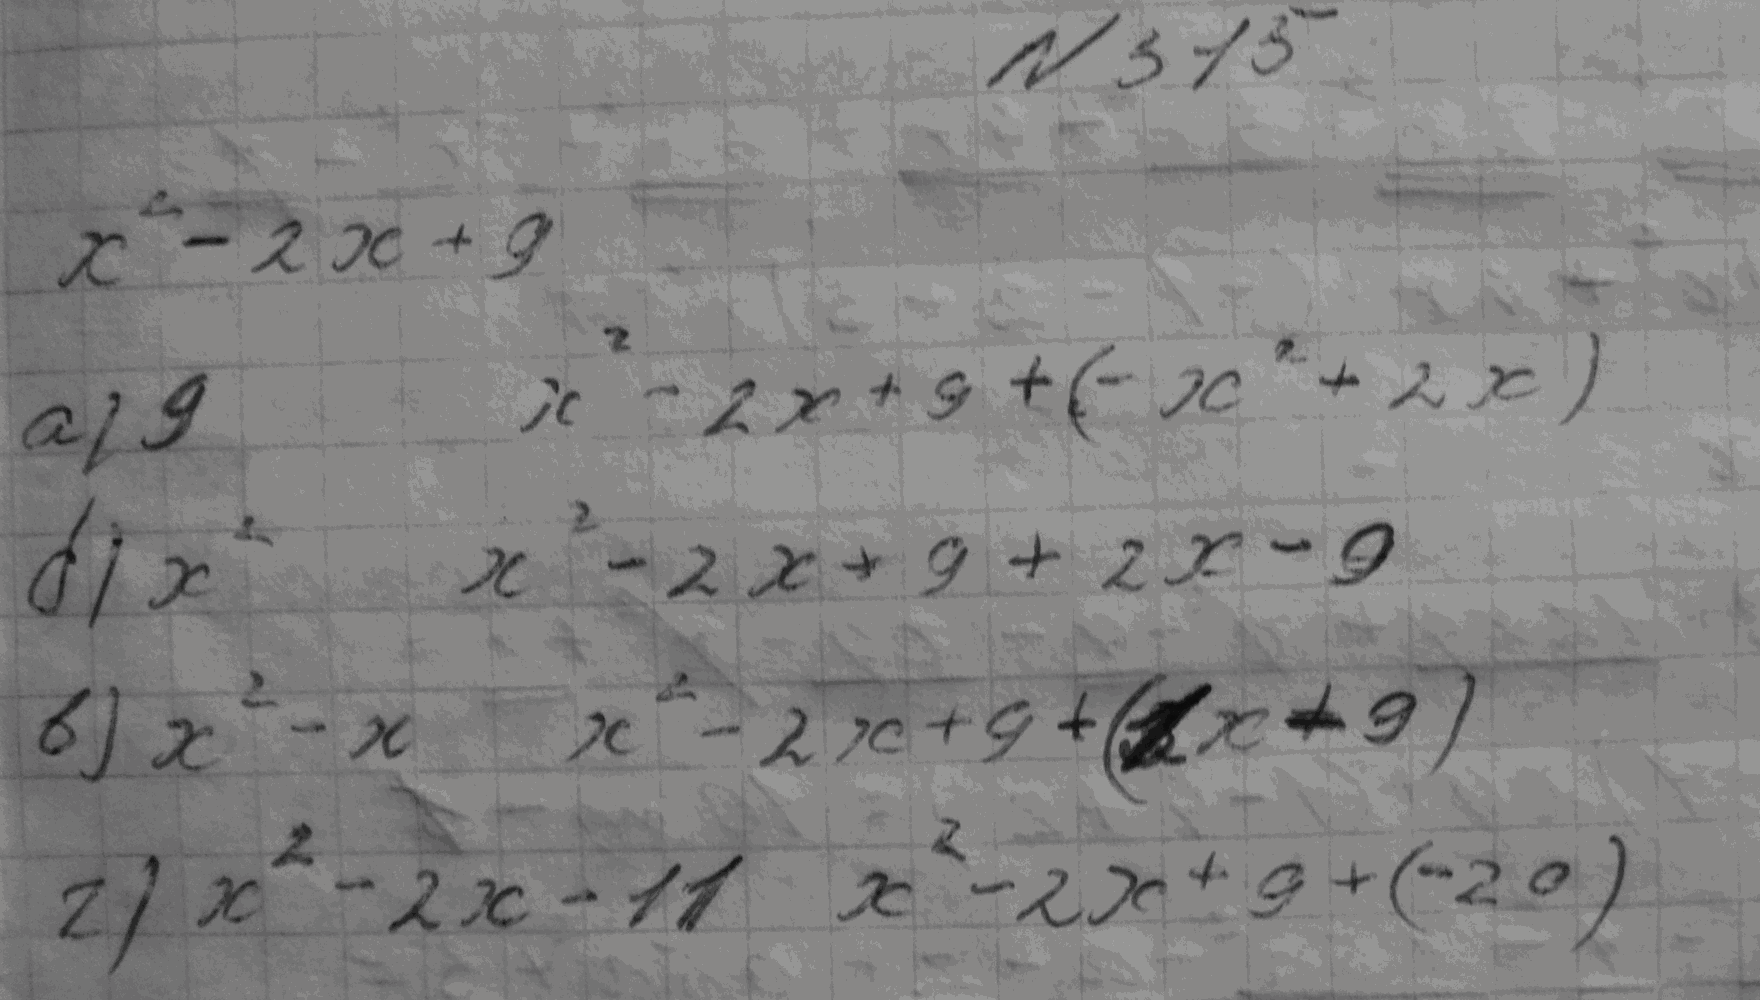 N 315
x² - 2x + 9
а) 9 x² - 2x + 9 + (- x² + 2x)
б) x² x² - 2x + 9 + 2x - 9
в) x² - x x² - 2x + 9 + (x + 9)
г) x² - 2x - 11 x² - 2x + 9 + (-20)